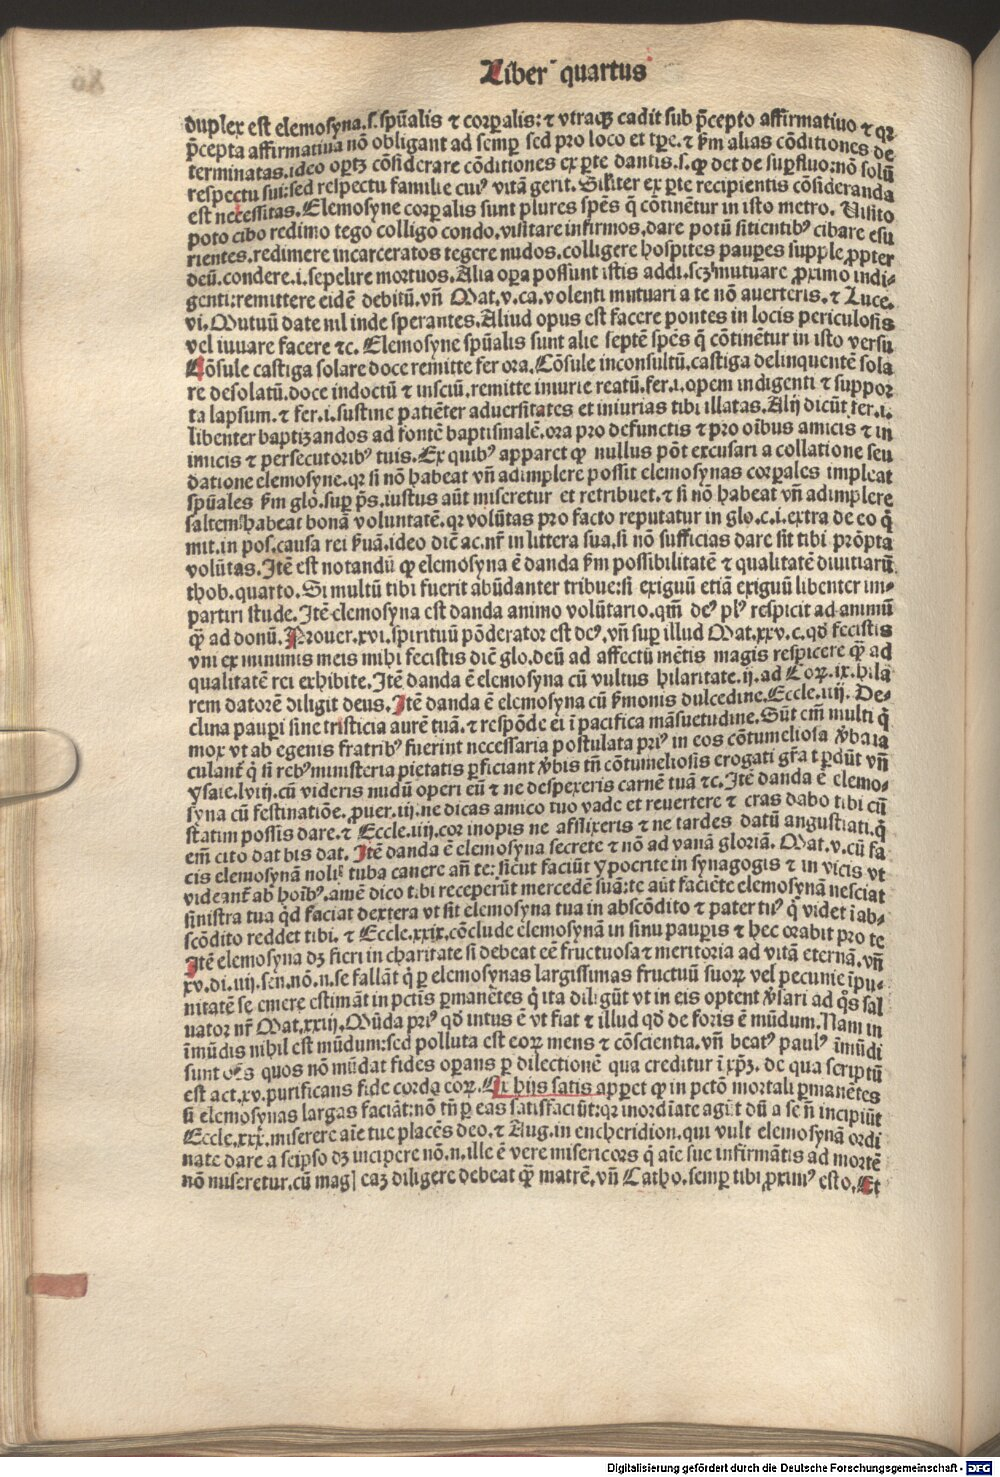 Liber quartus
duplex est elemosyna.s.spūalis ⁊ corꝑalis: ⁊ vtraqꝫ cadit sub p̄cepto affirmatiuo ⁊ qꝛ
p̄cepta affirmatiua nō obligant ad semꝑ sed pro loco et tꝑe.⁊ ẜm alias cōditiones de
terminatas.ideo oportꝫ cōsiderare cōditiones ex ꝑte dantis.s.ꝙ det de suꝑfluo:nō solū
respectu sui:sed respectu familie cuiꝰ vitā gerit. Siliter ex ꝑte recipientis cōsideranda
est necessitas.Elemosyne corꝑalis sunt plures spēs q̄ cōtinētur in isto metro. Uisito
poto cibo redimo tego colligo condo,visitare infirmos,dare potū sitientibꝰ cibare esu
rientes.redimere incarceratos tegere nudos.colligere hospites pauꝑes supple ꝓpter
deū.condere.i.sepelire mortuos.Alia oꝑa possunt istis addi.scꝫ mutuare ꝓximo indi-
genti:remittere eidē debitū.vn̄ Mat.v.ca.volenti mutuari a te nō auerteris.⁊ Luce.
vi.Mutuū date nil inde sperantes.Aliud opus est facere pontes in locis periculosis
vel iuuare facere ⁊c. Elemosyne spūalis sunt alie septē spēs q̄ cōtinētur in isto versu
Cōsule castiga solare doce remitte fer ora.Cōsule inconsultū.castiga delinquentē sola
re desolatū.doce indoctū ⁊ insciū.remitte iniurie reatū.fer.i.opem indigenti ⁊ suppor
ta lapsum.⁊ fer.i.sustine patiēter aduersitates et iniurias tibi illatas.Alij dicūt fer.i.
libenter baptizandos ad fontē baptismalē.ora pro defunctis ⁊ pro oībus amicis ⁊ in
imicis ⁊ persecutoribꝰ tuis.Ex quibꝰ apparet ꝙ nullus pōt excusari a collatione seu
datione elemosyne.qꝛ si nō habeat vn̄ adimplere possit elemosynas corꝑales impleat
spūales ẜm glo.suꝑ ps̄.iustus aūt miseretur et retribuet.⁊ si nō habeat vn̄ adimplere
saltem habeat bonā voluntatē.qꝛ volūtas pro facto reputatur in glo.c.i.extra de eo q̄
mit.in pos.causa rei ẜuā.ideo diē ac.nr̄ in littera sua.si nō sufficias dare sit tibi prōpta
volūtas.Itē est notandū ꝙ elemosyna ē danda ẜm possibilitatē ⁊ qualitatē diuitiarū
thob.quarto. Si multū tibi fuerit abūdanter tribue:si exiguū etiā exiguū libenter im-
partiri stude. Itē elemosyna est danda animo volūtario.qm̄ deꝰ plꝰ respicit ad animū
qꝫ ad donū. Prouer.xvi.spirituū pōderator est deꝰ.vn̄ suꝑ illud Mat.xxv.c.qd̄ fecistis
vni ex minimis meis mihi fecistis diē glo.deū ad affectū mētis magis respicere qꝫ ad
qualitatē rei exhibite.Itē danda ē elemosyna cū vultus hilaritate.ij.ad Coꝝ.ix.hila
rem datorē diligit deus.Itē danda ē elemosyna cū ẜmonis dulcedine.Eccle.iiij. De-
clina pauꝑi sine tristicia aurē tuā.⁊ respōde ei ī pacifica māsuetudine.Sūt em̄ multi q̄
mox vt ab egenis fratribꝰ fuerint necessaria postulata priꝰ in eos cōtumeliosa v̄ba ia
culant̄ q̄ si rebꝰ ministeria pietatis ꝑficiant v̄bis tn̄ cōtumeliosis erogati gr̄a t ꝑdūt vn̄
ysaie.lviij.cū videris nudū operi eū ⁊ ne despexeris carnē tuā ⁊c.Itē danda ē elemo-
syna cū festinatiōe.ꝓuer.iij.ne dicas amico tuo vade et reuertere ⁊ cras dabo tibi cū
statim possis dare.⁊ Eccle.iiij.cor inopis ne afflixeris ⁊ ne tardes datū angustiati.q̄
em̄ cito dat bis dat. Itē danda ē elemosyna secrete ⁊ nō ad vanā gloriā. Mat.v.cū fa
cis elemosynā noli tuba canere an̄ te:sicut faciūt ypocrite in synagogis ⁊ in vicis vt
videant̄ ab hoībꝰ.amē dico tibi receperūt mercedē suā:te aūt faciēte elemosynā nesciat
sinistra tua qd̄ faciat dextera vt sit elemosyna tua in abscōdito ⁊ pater tuꝰ q̄ videt ī ab-
scōdito reddet tibi. ⁊ Eccle.xxix.cōclude elemosynā in sinu pauꝑis ⁊ hec orabit pro te
Itē elemosyna dꝫ fieri in charitate si debeat eē fructuosa ⁊ meritoria ad vitā eternā.vn̄
xv.di.iiij.sen.nō.n.se fallāt q̄ ꝑ elemosynas largissimas fructuū suoꝝ vel pecunie īpu-
nitatē se emere estimāt in pctīs ꝑmanētes q̄ ita diligūt vt in eis optent v̄sari ad q̄s sal
uator nr̄ Mat.xxiij.Mūda priꝰ qd̄ intus ē vt fiat ⁊ illud qd̄ de foris ē mūdum.Nam in
īmūdis nihil est mūdum:sed polluta est eoꝝ mens ⁊ cōscientia.vn̄ beatꝰ paulꝰ īmūdi
sunt oēs quos nō mūdat fides oꝑans ꝑ dilectionē qua creditur ī xp̄ꝫ. de qua scriptū
est act.xv.purificans fide corda eoꝝ.Ex hijs satis apꝑet ꝙ in pctō mortali ꝑmanētes
si elemosynas largas faciāt:nō tn̄ ꝑ eas satisfaciūt:qꝛ inordīate agūt dū a se n̄ incipiūt
Eccle.xxx.miserere aīe tue placēs deo.⁊ Aug.in encheridion.qui vult elemosynā ordi
nate dare a seipso dꝫ incipere nō.n.ille ē vere misericors q̄ aīe sue infirmātis ad mortē
nō miseretur.cū mag eaꝫ diligere debeat qꝫ matrē.vn̄ Catho.semꝑ tibi ꝓximꝰ esto.Et
Digitalisierung gefördert durch die Deutsche Forschungsgemeinschaft - DFG